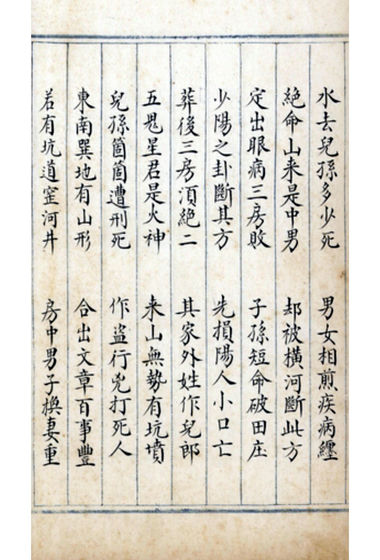 水去兒孫多少死　男女相煎疾病纏
絶命山来是中男　却被橫河斷此方
定出眼病三房敗　子孫短命破田庄
少陽之卦斷其方　先損陽人小口亡
葬後三房須絶二　其家外姓作兒郎
五鬼星君是火神　来山無勢有坑墳
兒孫箇箇遭刑死　作盗行兇打死人
東南巽地有山形　合出文章百事豐
若有坑道窒河井　房中男子換妻重